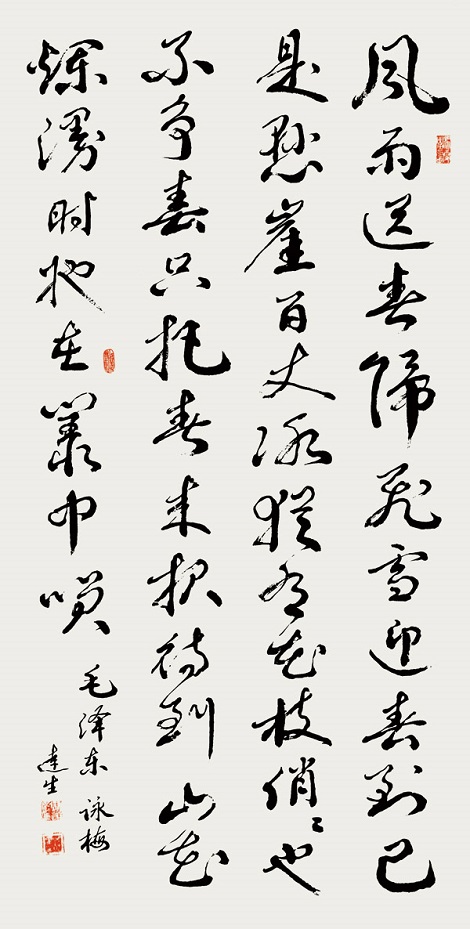 風雨送春歸飛雪迎春到已
是懸崖百丈冰猶有花枝俏〻也
不争春只把春来报待到山花
爛漫时她在叢中咲
毛泽东 咏梅
達生